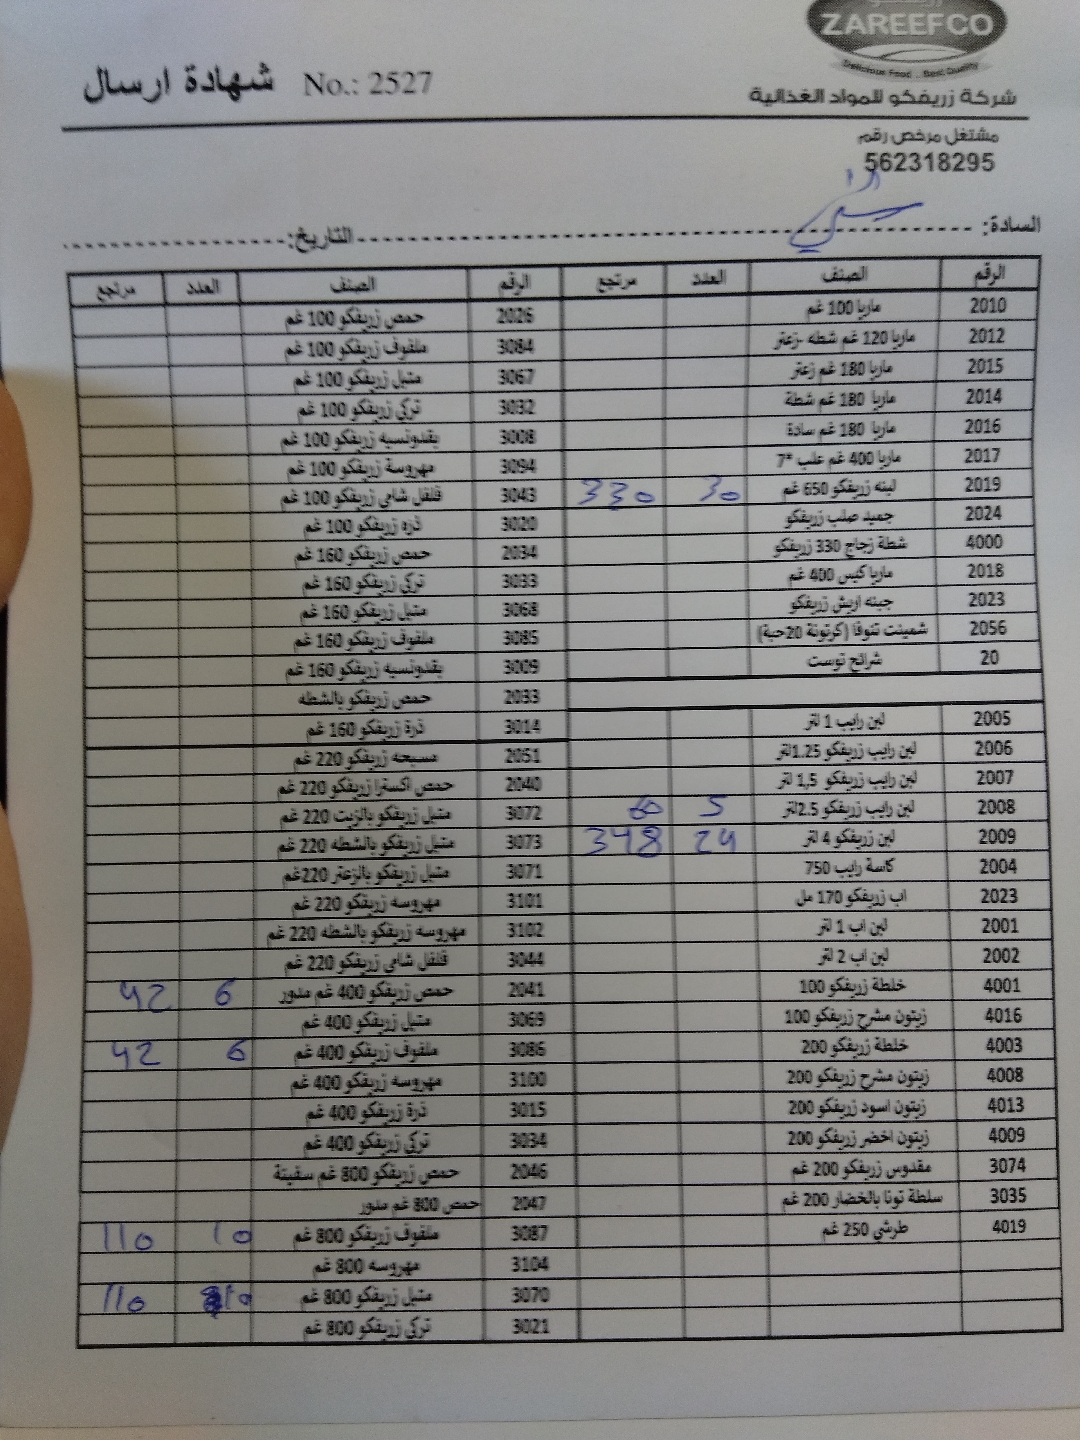 زريفكو
ZAREEFCO
Delicious Food .. Best Quality
شهادة ارسال No.: 2527
شركة زريفكو للمواد الغذائية
مشتغل مرخص رقم
562318295
السادة: التاريخ:
الرقم الصنف العدد مرتجع الرقم الصنف العدد مرتجع
2010 ماريا 100 غم 2026 حمص زريفكو 100 غم
2012 ماريا 120 غم شطه -زعتر 3084 ملفوف زريفكو 100 غم
2015 ماريا 180 غم زعتر 3067 متبل زريفكو 100 غم
2014 ماريا 180 غم شطة 3032 تركي زريفكو 100 غم
2016 ماريا 180 غم سادة 3008 بقدونسيه زريفكو 100 غم
2017 ماريا 400 غم علب *7 3094 مهروسة زريفكو 100 غم
2019 لبنه زريفكو 650 غم 30 330 3043 فلفل شامي زريفكو 100 غم
2024 جميد صلب زريفكو 3020 ذره زريفكو 100 غم
4000 شطة زجاج 330 زريفكو 2034 حمص زريفكو 160 غم
2018 ماريا كيس 400 غم 3033 تركي زريفكو 160 غم
2023 جبنه اربش زريفكو 3068 متبل زريفكو 160 غم
2056 شمينت تنوفا (كرتونة 20حبة) 3085 ملفوف زريفكو 160 غم
20 شرائح توست 3009 بقدونسيه زريفكو 160 غم
2033 حمص زريفكو بالشطه
2005 لبن رايب 1 لتر 3014 ذرة زريفكو 160 غم
2006 لبن رايب زريفكو 1.25لتر 2051 مسبحه زريفكو 220 غم
2007 لبن رايب زريفكو 1,5 لتر 2040 حمص اكسترا زريفكو 220 غم
2008 لبن رايب زريفكو 2.5لتر 5 60 3072 متبل زريفكو بالزيت 220 غم
2009 لبن زريفكو 4 لتر 24 348 3073 متبل زريفكو بالشطه 220 غم
2004 كاسة رايب 750 3071 متبل زريفكو بالزعتر 220غم
2023 اب زريفكو 170 مل 3101 مهروسه زريفكو 220 غم
2001 لبن اب 1 لتر 3102 مهروسه زريفكو بالشطه 220 غم
2002 لبن اب 2 لتر 3044 فلفل شامي زريفكو 220 غم
4001 خلطة زريفكو 100 2041 حمص زريفكو 400 غم مدور 6 42
4016 زيتون مشرح زريفكو 100 3069 متبل زريفكو 400 غم
4003 خلطة زريفكو 200 3086 ملفوف زريفكو 400 غم 6 42
4008 زيتون مشرح زريفكو 200 3100 مهروسه زريفكو 400 غم
4013 زيتون اسود زريفكو 200 3015 ذرة زريفكو 400 غم
4009 زيتون اخضر زريفكو 200 3034 تركي زريفكو 400 غم
3074 مقدوس زريفكو 200 غم 2046 حمص زريفكو 800 غم سفينة
3035 سلطة تونا بالخضار 200 غم 2047 حمص 800 غم مدور
4019 طرشي 250 غم 3087 ملفوف زريفكو 800 غم 10 110
3104 مهروسه 800 غم
3070 متبل زريفكو 800 غم 10 110
3021 تركي زريفكو 800 غم